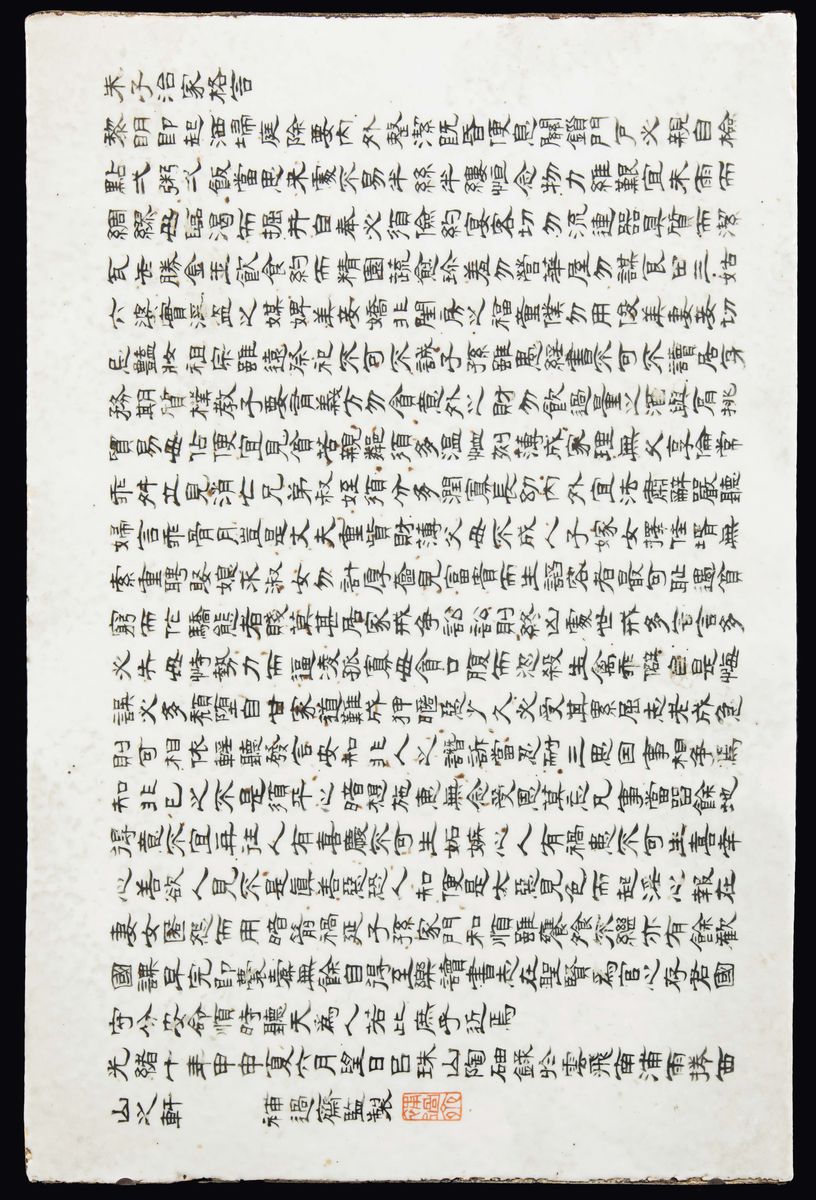 朱子治家格言
黎明即起洒埽庭除要內外整潔既昏便息關鎖門戶必親自檢
點弌粥弌飯當思来處不易半絲半縷恒念物力維艱宜未雨而
綢繆毋臨渴而掘井自奉必須儉約宴客切勿流連器具質而潔
瓦缶勝金玉飲食約而精園蔬愈珍羞勿營華屋勿謀良田三姑
六婆實淫盜之媒婢美妾嬌非閨房之福童僕勿用俊美妻妾切
忌豔妝祖宗雖遠祭祀不可不誠子孫雖愚經書不可不讀居身
務期質樸教子要有義方勿貪意外之財勿飲過量之酒與肩挑
貿易毋佔便宜見貧苦親鄰須多溫恤刻薄成家理無久享倫常
乖舛立見消亡兄弟叔姪須分多潤寡長幼內外宜法肅辭嚴聽
婦言乖骨月豈是丈夫重貲財薄父母不成人子嫁女擇佳壻無
索重聘娶媳求淑女勿計厚奩見富貴而生諂容者最可恥遇貧
窮而作驕態者賤莫甚居家戒爭訟訟則終凶處世戒多言言多
必失毋恃勢力而逼凌孤寡毋貪口腹而恣殺生禽乖僻自是悔
誤必多頹墮自甘家道難成狎暱惡少久必受其累屈志老成急
則可相依輕聽發言安知非人之譖訴當忍耐三思因事相爭焉
知非己之不是須平心暗想施惠無念受恩莫忘凡事當留餘地
得意不宜再往人有喜慶不可生妬嫉心人有禍患不可生喜幸
心善欲人見不是真善惡恐人知便是大惡見色而起淫心報在
妻女匿怨而用暗箭禍延子孫家門和順雖饔飧不繼亦有餘歡
國課早完即囊橐無餘自得至樂讀書志在聖賢為官心存君國
守分安命順時聽天為人若此庶乎近焉
光緒十年甲申夏六月望日呂珠山陶錄於雲飛南浦雨捲西
山之軒 補過齋監製